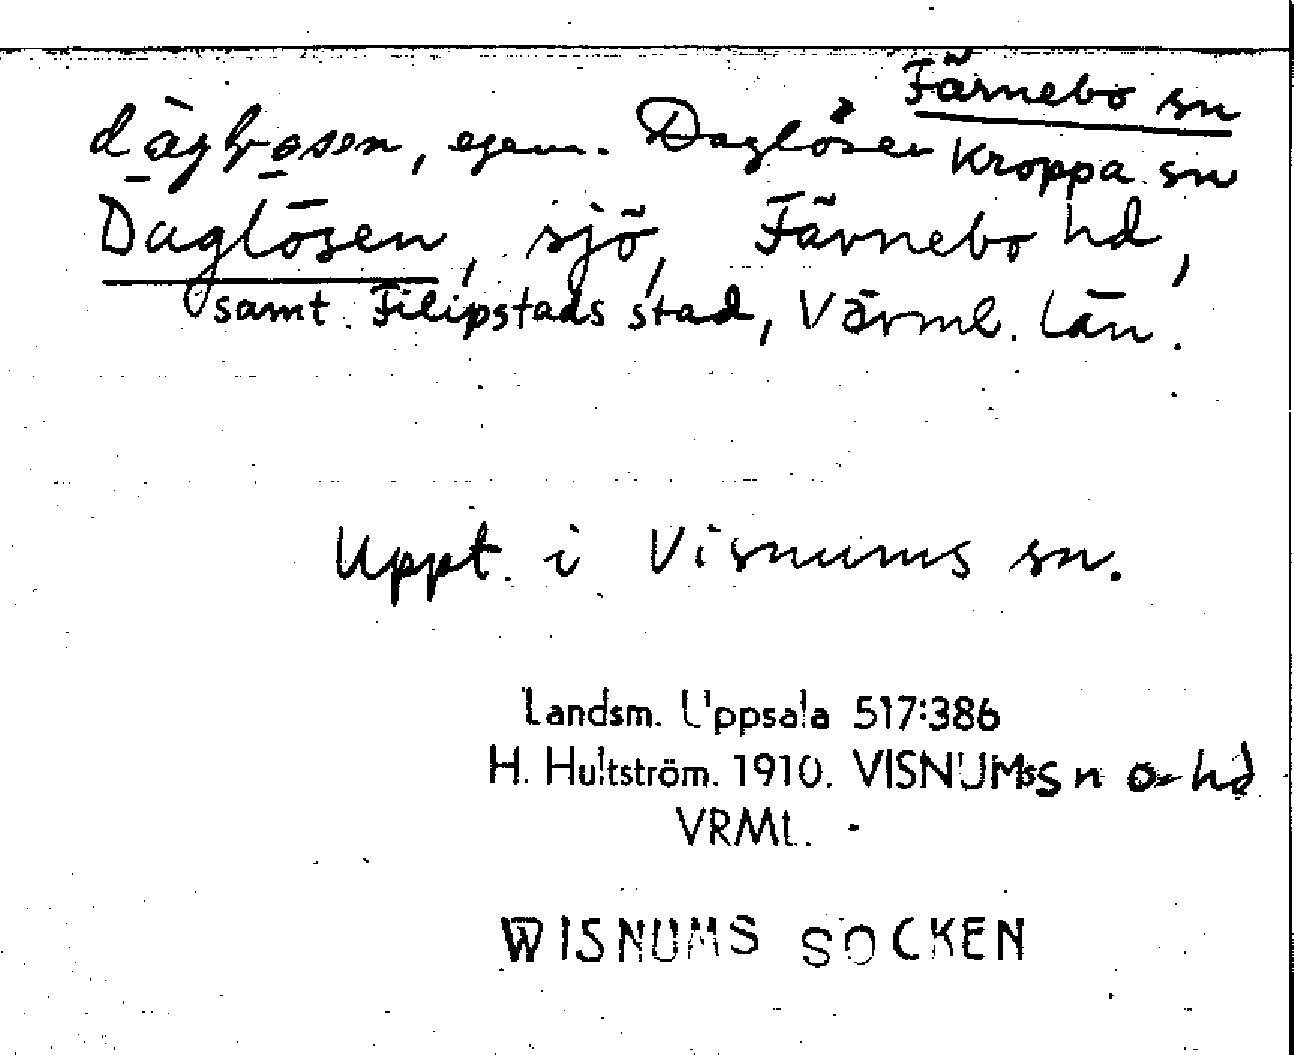 Färnebo sn
egenn. Daglösen Kroppa sn
Daglösen, sjö, Färnebo hd,
samt Filipstads stad, Värml. län.
Uppt. i Visnums sn.
Landsm. Uppsala 517:386
H. Hultström. 1910. VISNUMs sn o hd
VRML.
WISNUMS SOCKEN